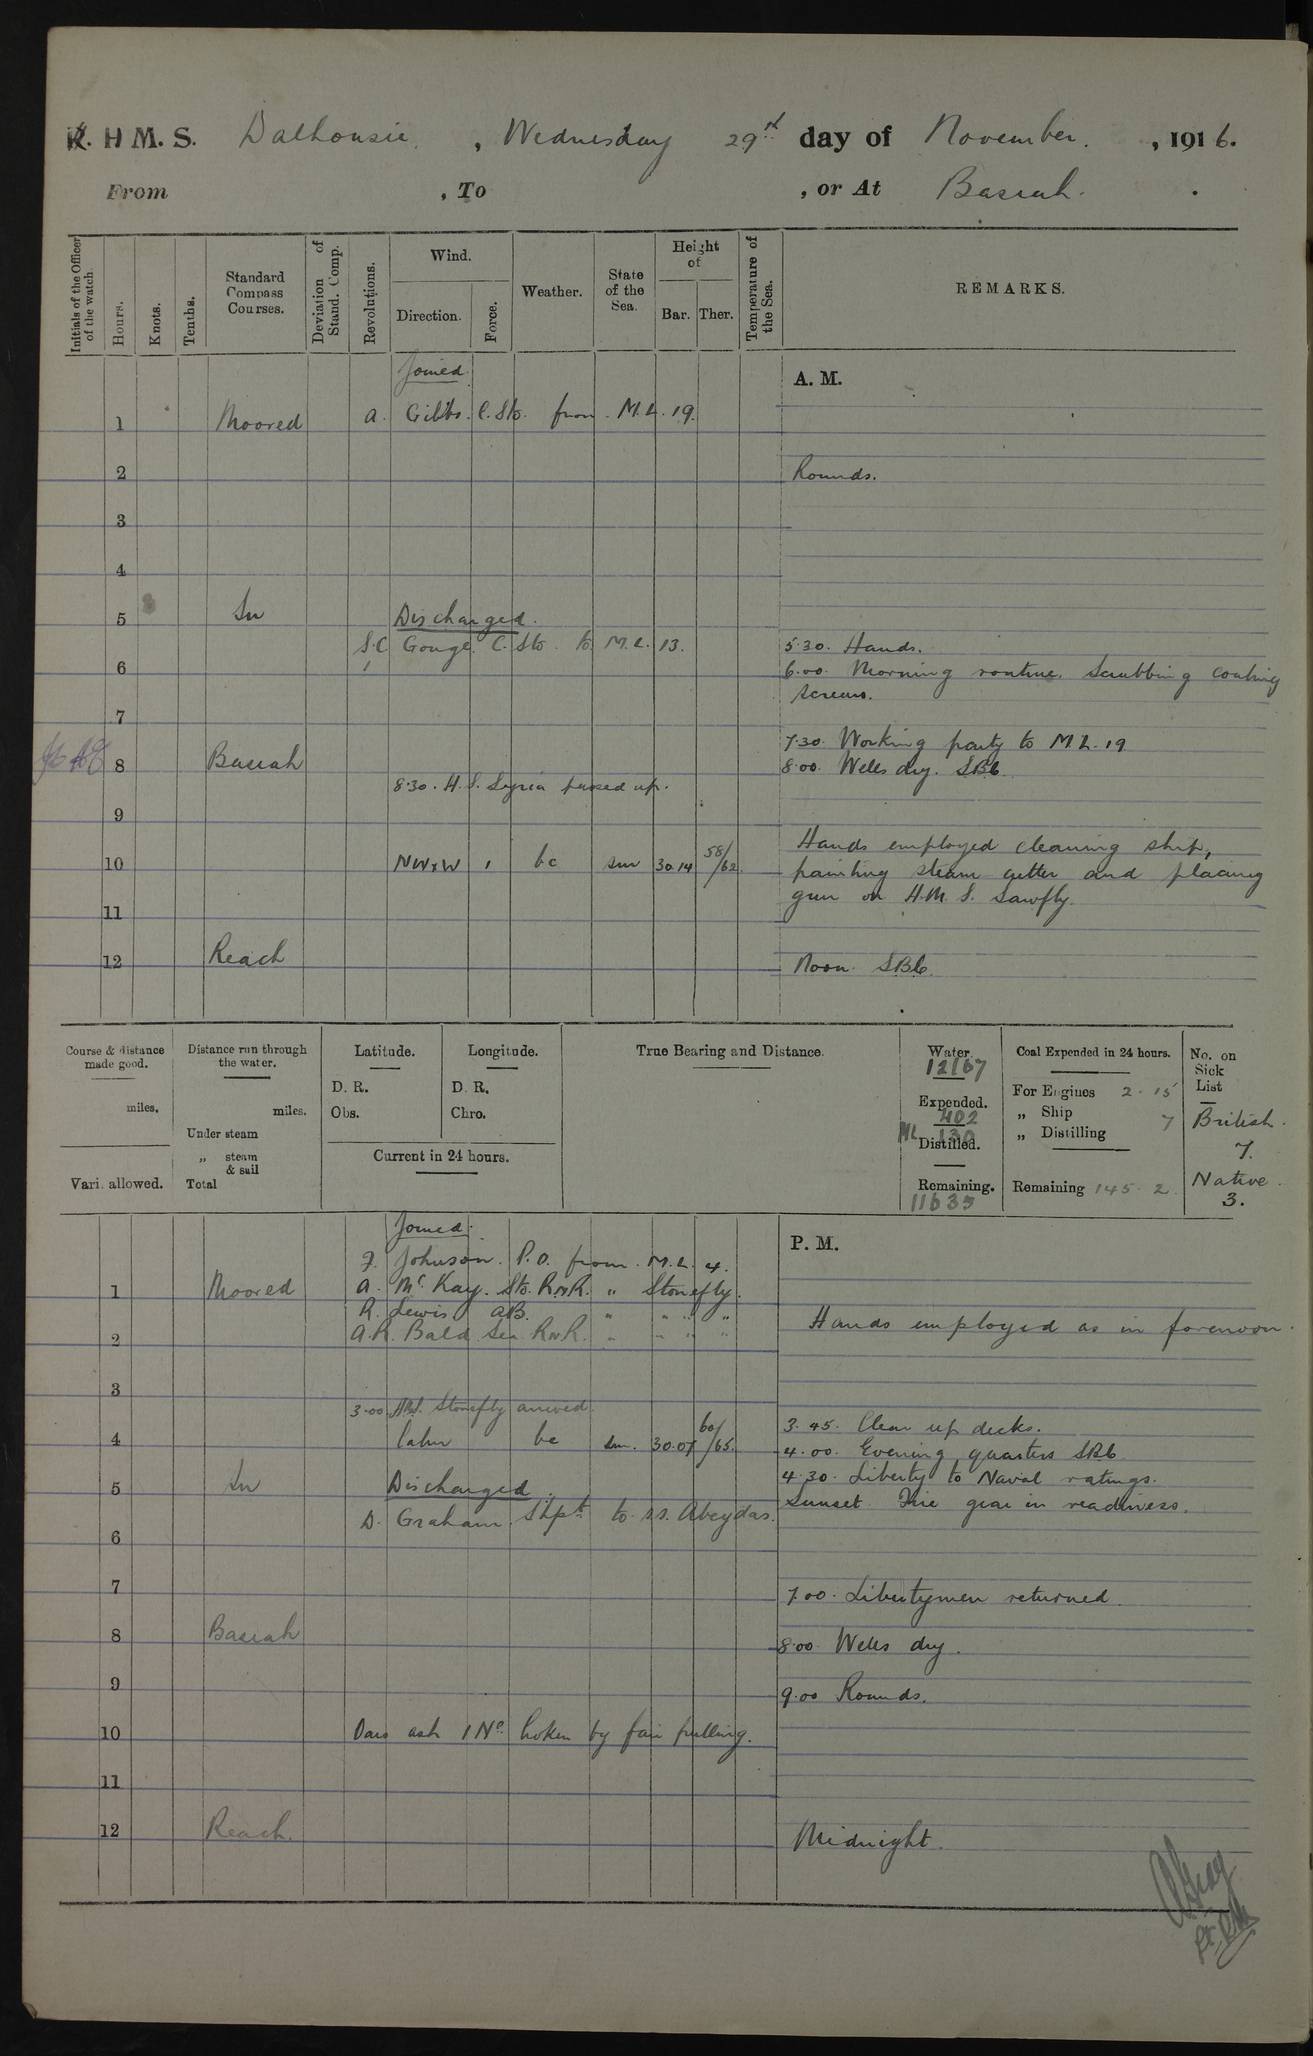 H M. S. Dalhousie, Wednesday 29th day of November, 1916.
From , To , or At Basrah.
Initials of the Officer of the watch.
Hours.
Knots.
Tenths.
Standard Compass Courses.
Deviation of Stand. Comp.
Revolutions.
Wind.
Direction.
Force.
Weather.
State of the Sea.
Height of
Bar. Ther.
Temperature of the Sea.
REMARKS.
Joined
A. M.
1 Moored A. Gibbs. C. Sto. from M.L. 19.
2 Rounds.
3
4
5 In Discharged.
S.C. Gouge. C. Sto. to M.L. 13. 5.30. Hands.
6 6.00 Morning routine. Scrubbing coaling
screens.
7
7.30. Working party to M.L. 19
8 Basrah 8.00. Wells dry. SB6
8.30. H.S. Syria passed up.
9
Hands employed cleaning ship,
10 NWxW 1 bc sm 30.14 58/62 painting steam cutter and placing
gun on H.M.S. Sawfly.
11
12 Reach Noon. SB6.
Course & distance made good.
miles.
Vari. allowed.
Distance run through the water.
miles.
Under steam
„ steam & sail
Total
Latitude.
D. R.
Obs.
Longitude.
D. R.
Chro.
Current in 24 hours.
True Bearing and Distance.
Water.
12167
Expended.
402
ML 130
Distilled.
Remaining.
11635
Coal Expended in 24 hours.
For Engines 2.15
„ Ship 7
„ Distilling
Remaining 145.2
No. on Sick List
British.
7.
Native.
3.
Joined.
P. M.
J. Johnson. P.O. from M.L. 4.
1 Moored A. McKay. Sto. R.N.R. „ Stonefly.
R. Lewis AB. „ „ „ „
Hands employed as in forenoon.
2 A.R. Bald Sea R.N.R. „ „ „ „
3
3.00 HMS. Stonefly arrived
3.45. Clear up decks.
4 Calm bc sm. 30.07 60/65. 4.00. Evening quarters SB6
4.30. Liberty to Naval ratings.
5 In Discharged.
Sunset. Fire gear in readiness.
D. Graham. Shpt to s.s. Abeydas.
6
7 7.00. Libertymen returned.
8 Basrah 8.00 Wells dry.
9 9.00 Rounds.
10 Oars ash 1 No. broken by fair pulling.
11
12 Reach. Midnight.